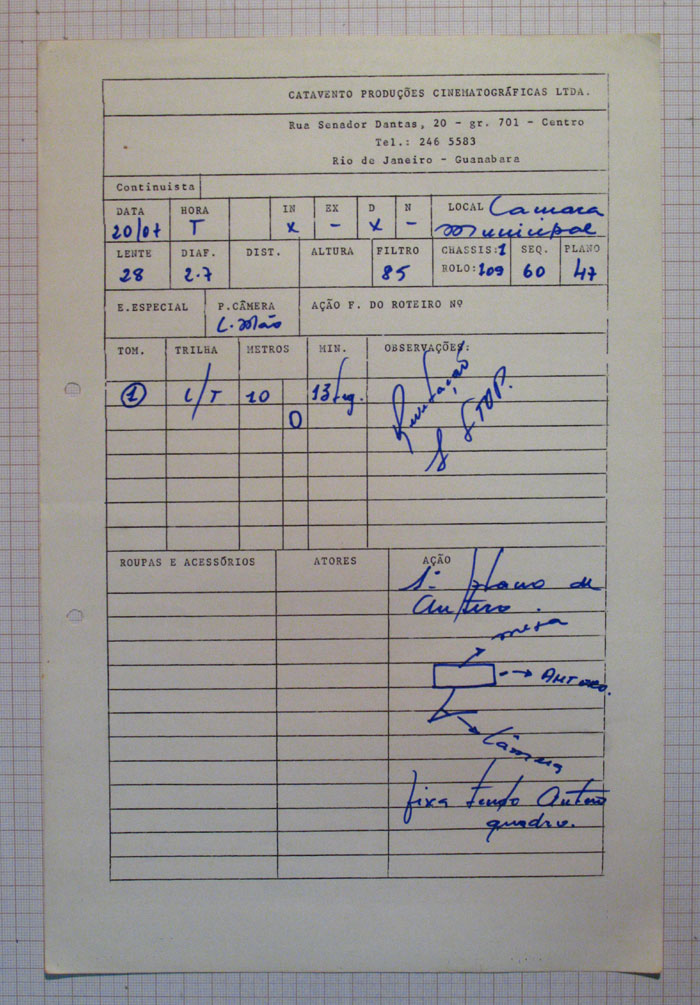 CATAVENTO PRODUÇÕES CINEMATOGRÁFICAS LTDA.
Rua Senador Dantas, 20 - gr. 701 - Centro
Tel.: 246 5583
Rio de Janeiro - Guanabara
Continuista
DATA HORA IN EX D N LOCAL Camara
20/07 T x - x - Municipal
LENTE DIAF. DIST. ALTURA FILTRO CHASSIS:1 SEQ. PLANO
28 2.7 85 ROLO:109 60 47
E.ESPECIAL P.CÂMERA AÇÃO F. DO ROTEIRO Nº
C. Mão
TOM. TRILHA METROS MIN. OBSERVAÇÕES:
1 L/T 10 13 seg.
O
STOP.
ROUPAS E ACESSÓRIOS ATORES AÇÃO
1º plano de
Antero.
mesa
ANTERO.
Câmera
fixa tendo Antero
quadro.